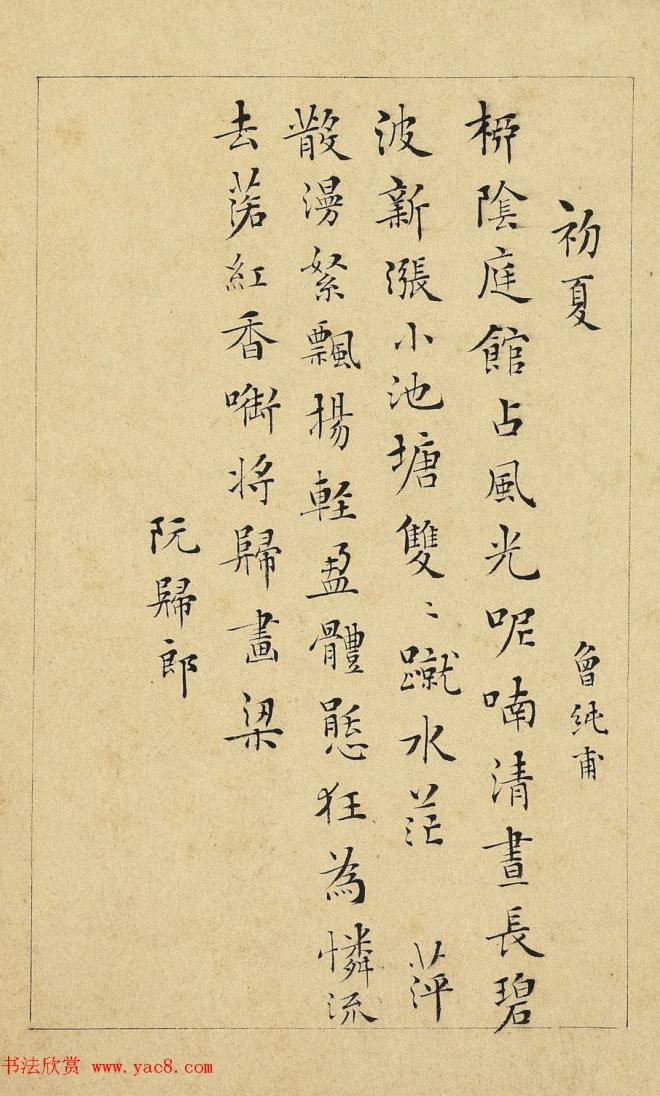 初夏
曾純甫
栁陰庭館占風光呢喃清晝長碧
波新漲小池塘雙〻蹴水茫 萍
散漫絮飄揚輕盈體態狂為憐流
去落紅香啣将歸畫梁
阮歸郎
书法欣赏 www.yac8.com